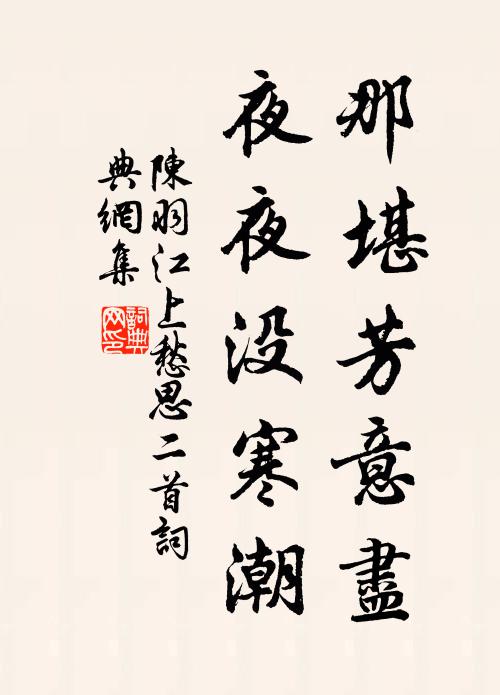 那堪芳意盡
夜夜没寒潮
陳羽江上愁思二首詞
典網集
詞典
网印